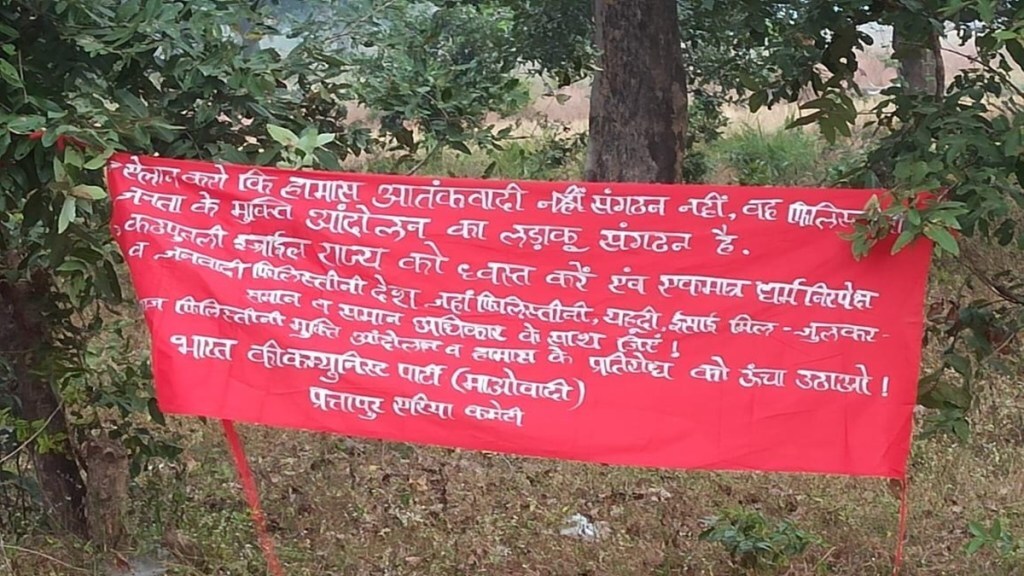 ऐलान करो कि हामास आतंकवादी नहीं संगठन नहीं, वह फिलिस
जनता के मुक्ति आंदोलन का लड़ाकू संगठन है.
कठपुतली इज्राईल राज्य को ध्वस्त करें एवं एकमात्र धर्म निरपेक्ष
व जनवादी फिलिस्तीनी देश जहां फिलिस्तीनी, यहूदी, ईसाई मिल-जुलकर-
समान व समान अधिकार के साथ जिएं!
फिलिस्तीनी मुक्ति आंदोलन व हामास के प्रतिरोध को ऊंचा उठाओ!
भारत की कम्युनिस्ट पार्टी (माओवादी)
प्रतापुर एरिया कमेटी